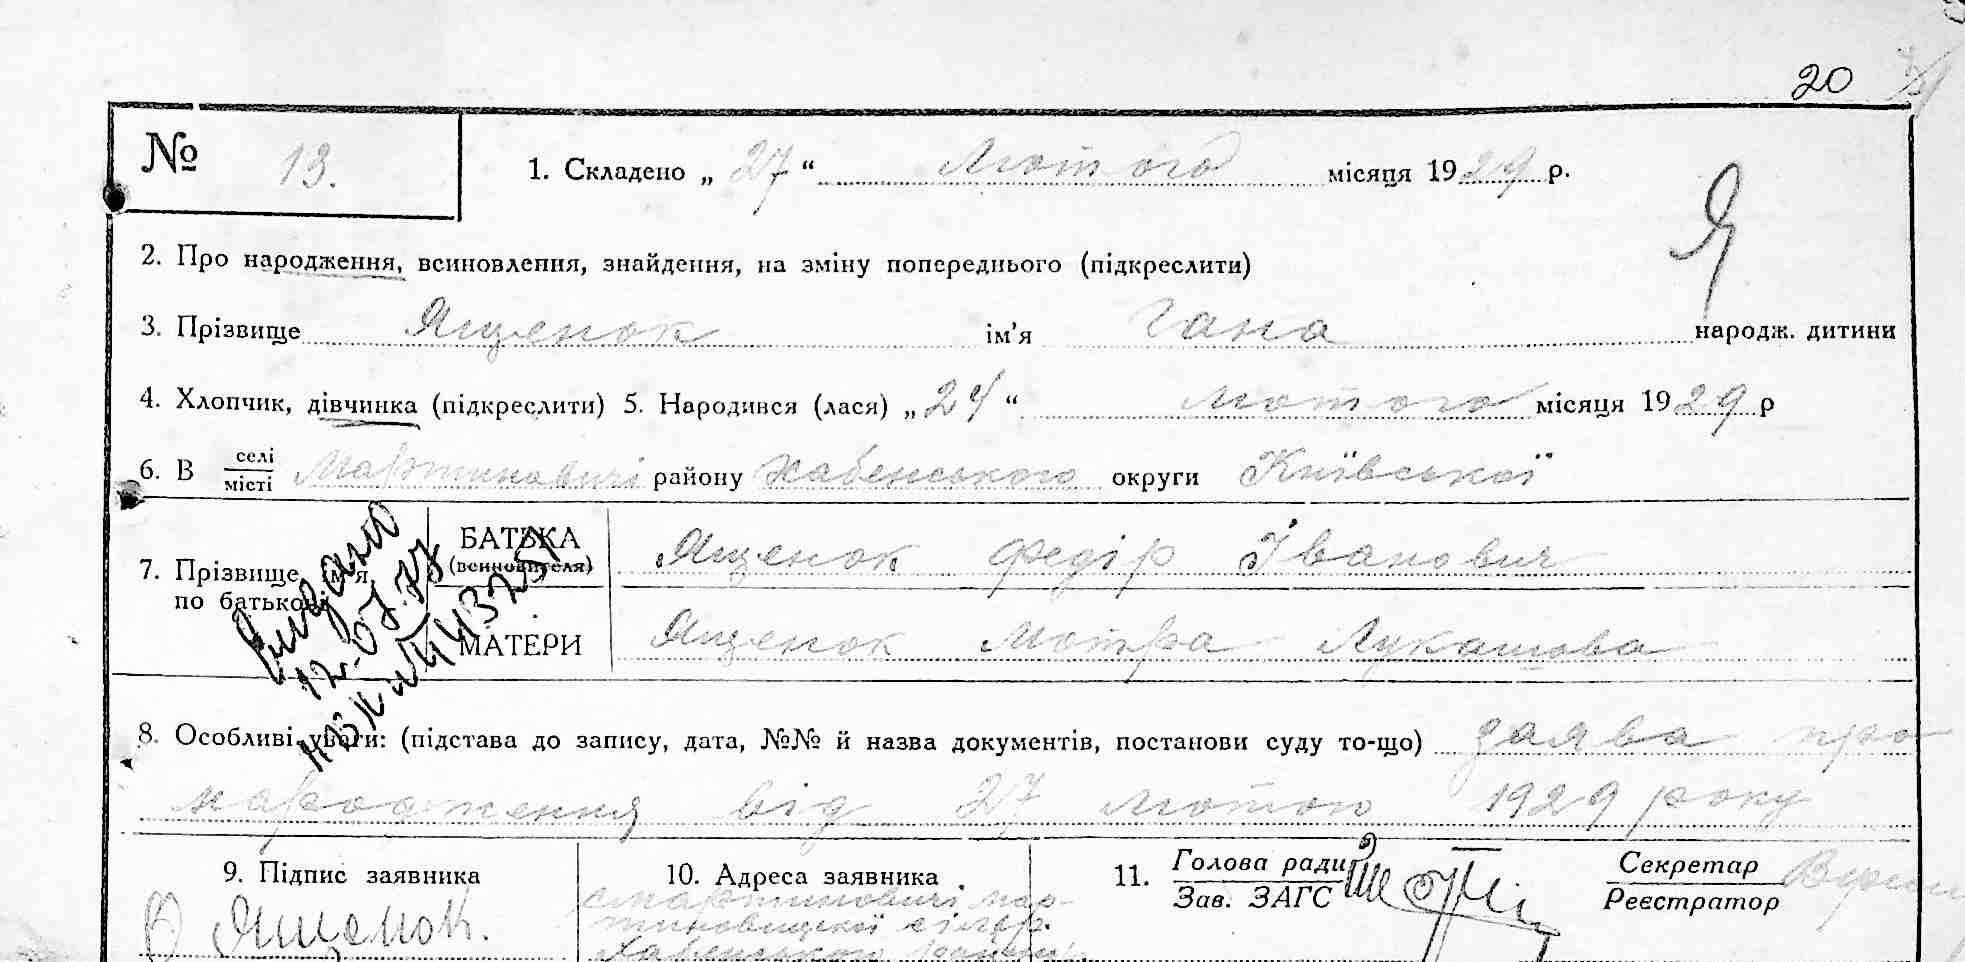 20
№ 13. 1. Складено „ 27 “ Лютого місяця 1929 р.
Я
2. Про народження, всиновлення, знайдення, на зміну попереднього (підкреслити)
3. Прізвище Ященок ім'я Гана народж. дитини
4. Хлопчик, дівчинка (підкреслити) 5. Народився (лася) „ 24 “ лютого місяця 1929 р
6. В селі місті Мартиновичі району Хабенського округи Київської
7. Прізвище, ім'я, по батькові
БАТЬКА (всиновителя) Ященок Федір Іванович
МАТЕРИ Ященок Мотра Лукашова
Видано
12.07.77
8. Особливі уваги: (підстава до запису, дата, №№ й назва документів, постанови суду то-що) заява про
народження від 27 лютого 1929 року
9. Підпис заявника
Ященок.
10. Адреса заявника
с мартиновичі мар-
тиновицької сільр.
Хабенського
11. Голова ради
Зав. ЗАГС
Секретар
Реєстратор